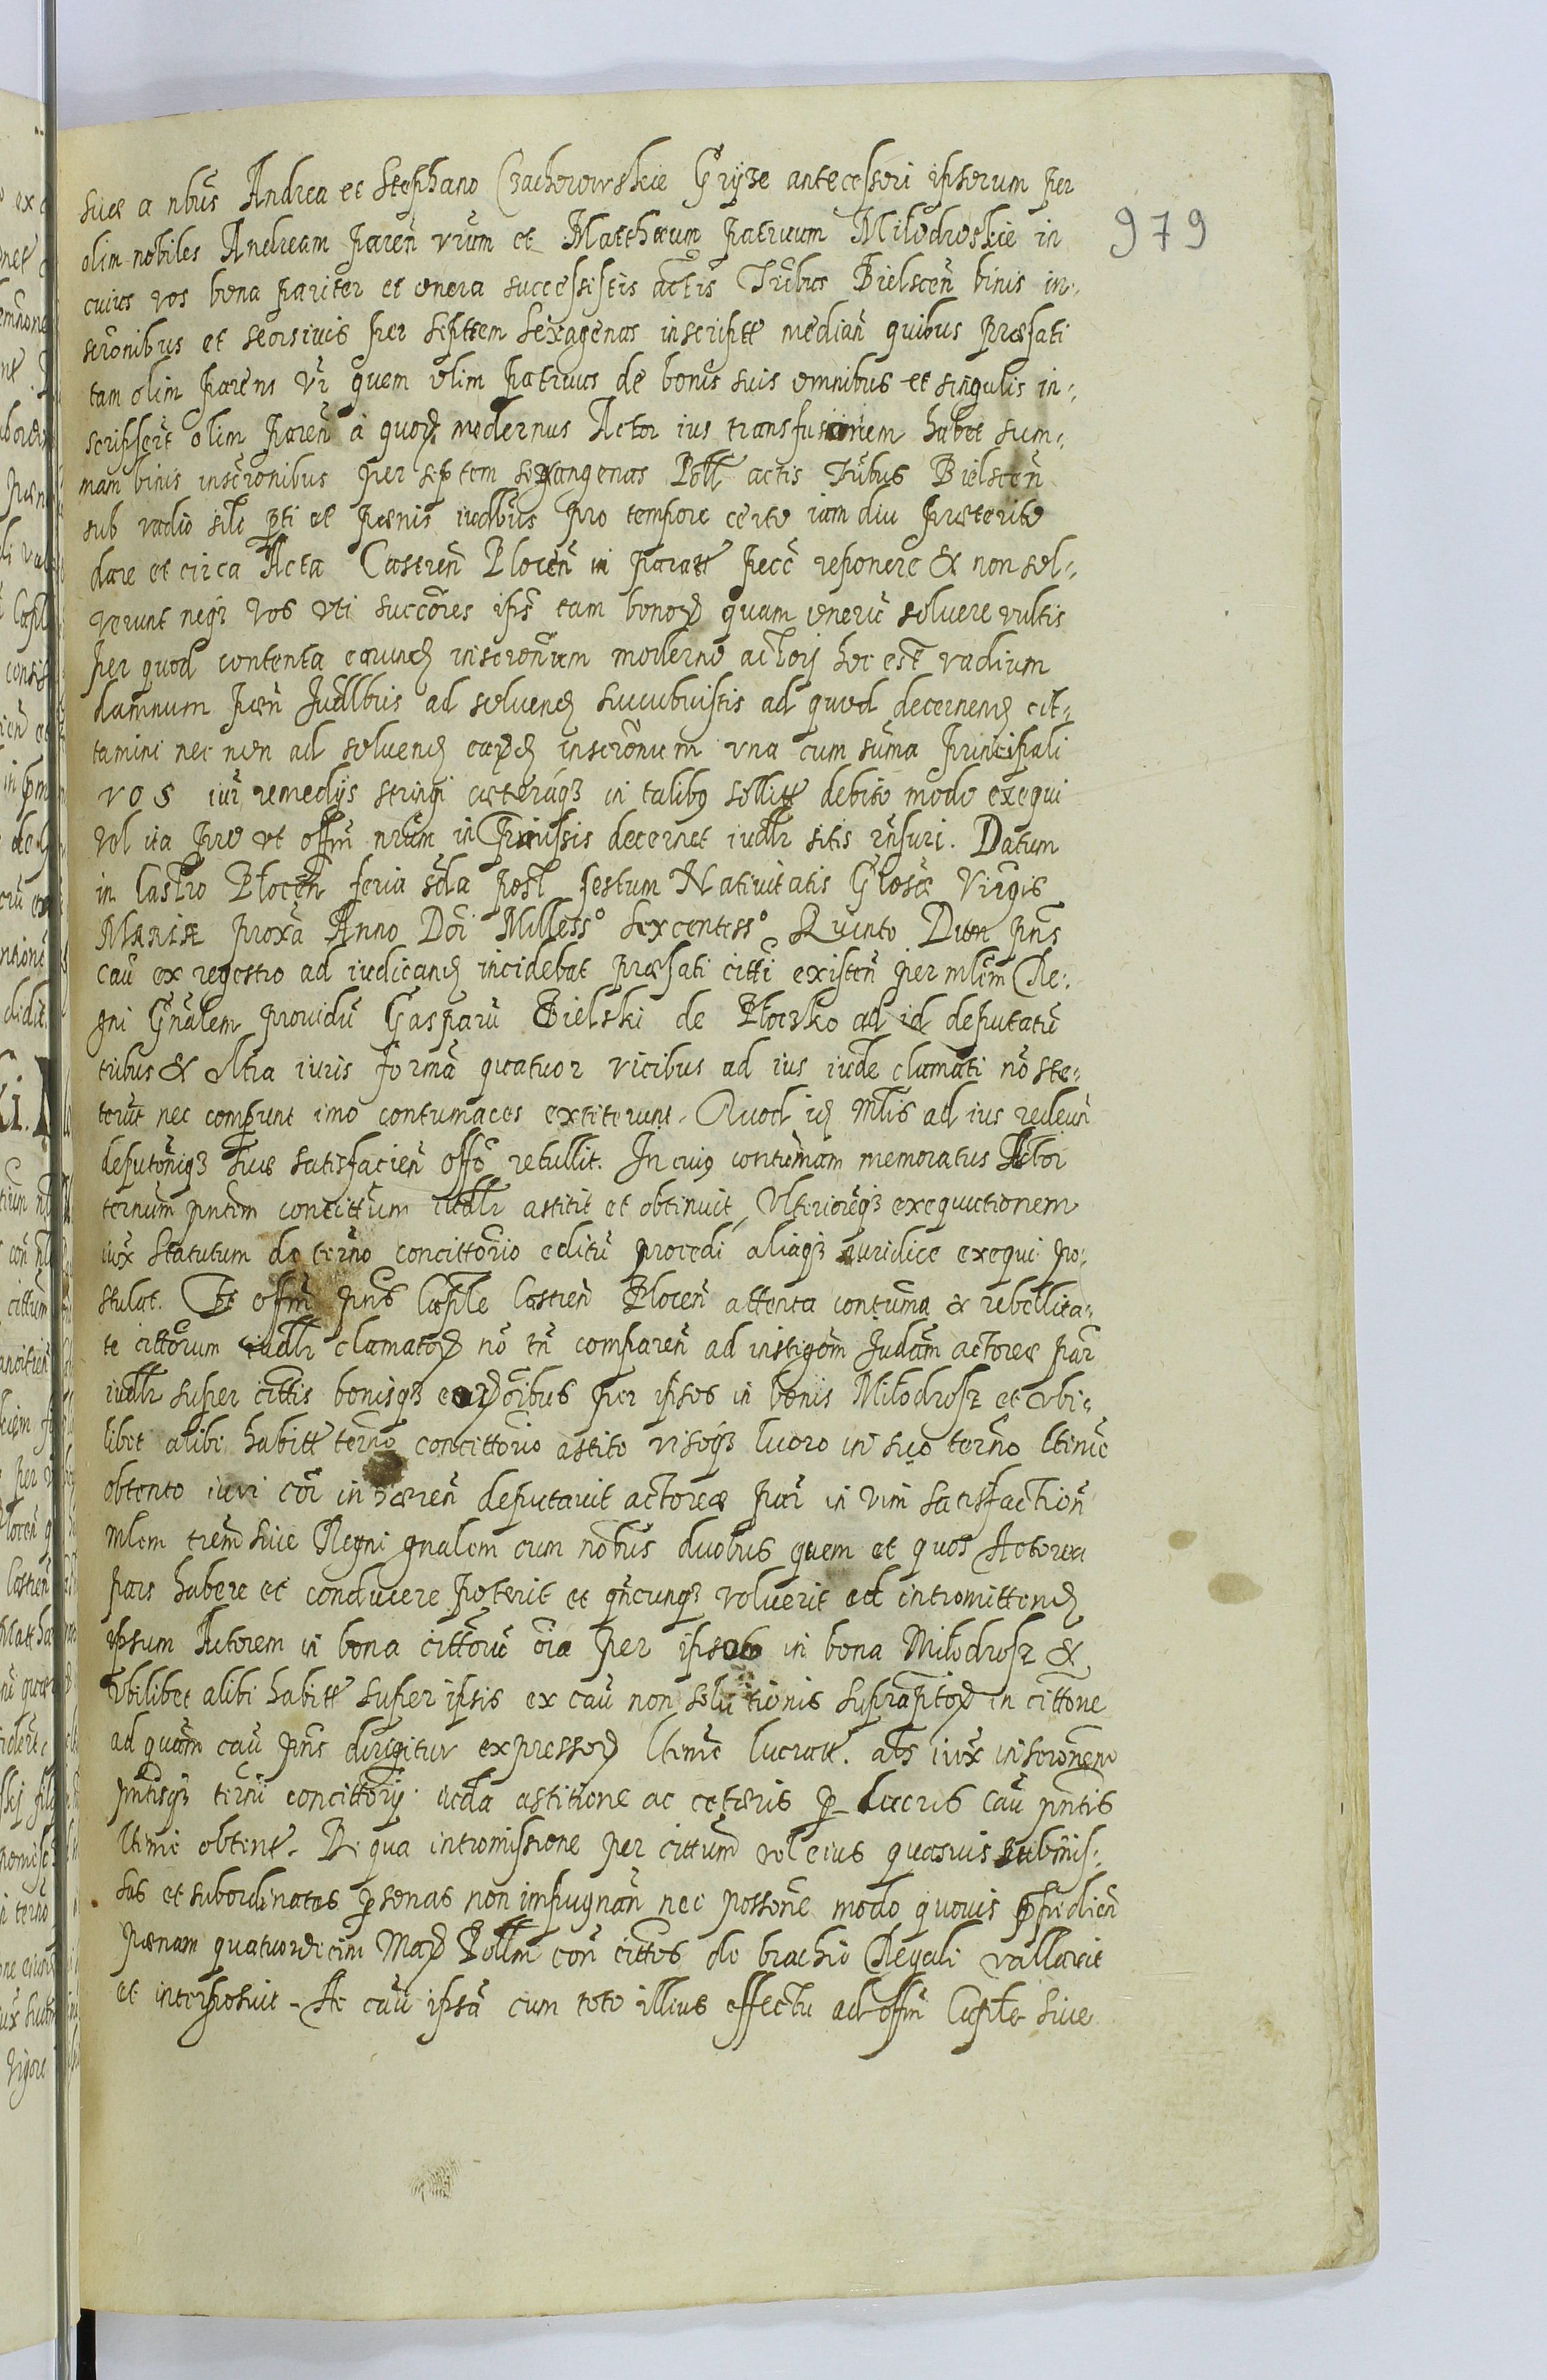 suæ a nbus Andrea et Stephano Czacherowskie Gryze antecessori ipsorum per
979
olim nobiles Andream paren vrum et Matthæum patruum Milodroskie in
cuius vos bona pariter et onera successistis actis Tribus Bielscen binis in-
scronibus et seorsiuis per septem sexagenas inscriptt median quibus præfati
tam olim parens vr quem olim patruus de bonis suis omnibus et singulis in-
scripsert olim paren a quorum modernus Actor ius transfusionem habet sum-
mam binis inscronibus per septem sexangenas Poll actis Tribus Bielscen
sub vadio sili pti et pænis iudlbus pro tempore certo iam diu præterito
dare et circa Acta Castren Plocen in paratt pecc reponere & non sol-
verunt neq3 vos vti succores ipsi tam bonorum quam oneru soluere vultis
per quod contenta earund inscronum moderno actori hoc est vadium
damnum pæn Judlbus ad soluend succubuistis ad quod decernend cit-
tamini nec non ad soluend earund inscronum vna cum suma principali
vos iur remedijs stringi cæteraq3 in talibus sollitt debito modo exequi
vel ita pro vt offm nrum in præmissis decernet iudlr sitis rnsuri. Datum
in Castro Plocen feria scda post festum Natiuitatis Glosæ Virgis
Mariæ proxa Anno Doi Millesso Sexcentesso Quinto Dum pns
cau ex regestro ad iudicand incidebat præfati citti existen per mlem Re-
gni Gnalem prouidu Gasparu Bielski de Plocko ad id deputatu
tribus & vltra iuris forma quatuor vicibus ad ius iude clamati no ste-
terut nec comprunt imo contumaces extiterunt. Quod id Mlis ad ius redeun
deputoniq3 suæ satisfacien offo retullit. In cuius contumam memoratus Actor
ternum pntem concittum iudlr astitit et obtinuit, Vlterioreq3 exequutionem
iux Statutum de terno concittorio editu procedi aliaq3 iuridice exequi po-
stulat. Et offm pns Caple Castren Plocen attenta contuma & rebellita-
te cittorum iudlr clamatorum no tn comparen ad instigom Judam actoreæ par
iudlr super cittis bonisq3 eorum oibus per ipsos in bonis Milodrosz et vbi-
libet alibi habitt terno concittorio astito visoq3 lucro in suo terno ltime
obtento iuri cor in hæren deputauit actoreæ par in vim satisfaction
mlem trem siue Regni gnalem cum nobus duobus quem et quos Actorea
pars habere et conducere poterit et qncunq3 voluerit ad intromittend
ipsum Actorem in bona cittoru oia per ipsos in bona Milodrosz &
vbilibet alibi habitt super ipsis ex cau non solutionis supraptorum in cittone
ad quam cau pns dirigitur expressorum ltime lucratt. als iux inscronem
pntisq3 terni concittorij iucda astitione ac ceteris p lucris cau pntis
ltime obtent. De qua intromissione per cittum vel eius quasuis submis-
sas et subordinatas psonas non impugnan nec possone modo quouis pfredien
pænam quatuordecim Marum Pollm con cittos de brachio Regali vallauit
et interposuit. Ac cau ipsa cum toto illius effectu ad offm Caple siue